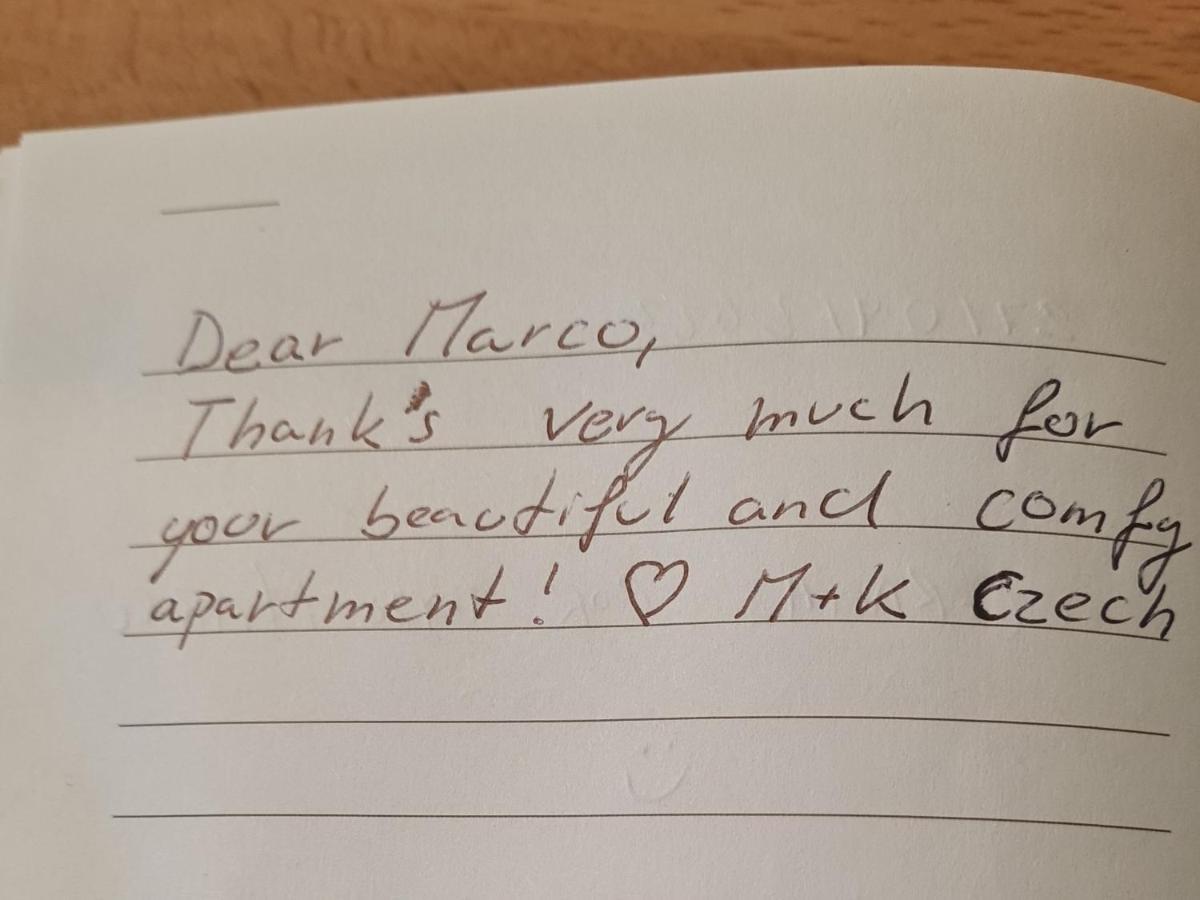 Dear Marco,
Thank's very much for
your beautiful and comfy
apartment! ♡ M+K Czech